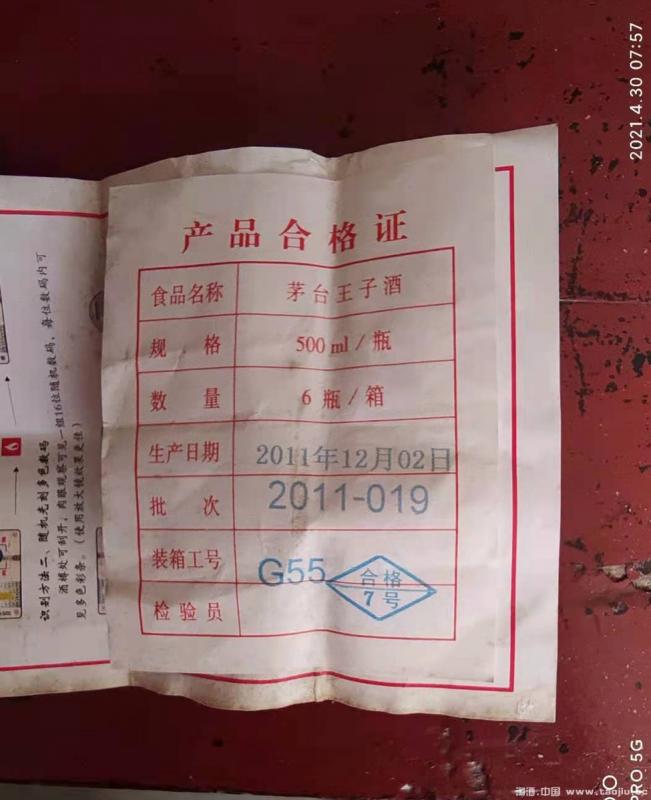 产品合格证
食品名称 茅台王子酒
规格 500ml/瓶
数量 6瓶/箱
生产日期 2011年12月02日
批次 2011-019
装箱工号 G55
检验员 合格
7号
识别方法二、随机光刻多色数码
酒撙处可刮开，肉眼观察可见一组16位随机数码，每位数码内可
见多色彩条。（使用放大镜效果更佳）
2021.4.30 07:57
PRO 5G
淘酒.中国 www.taojiu.cc